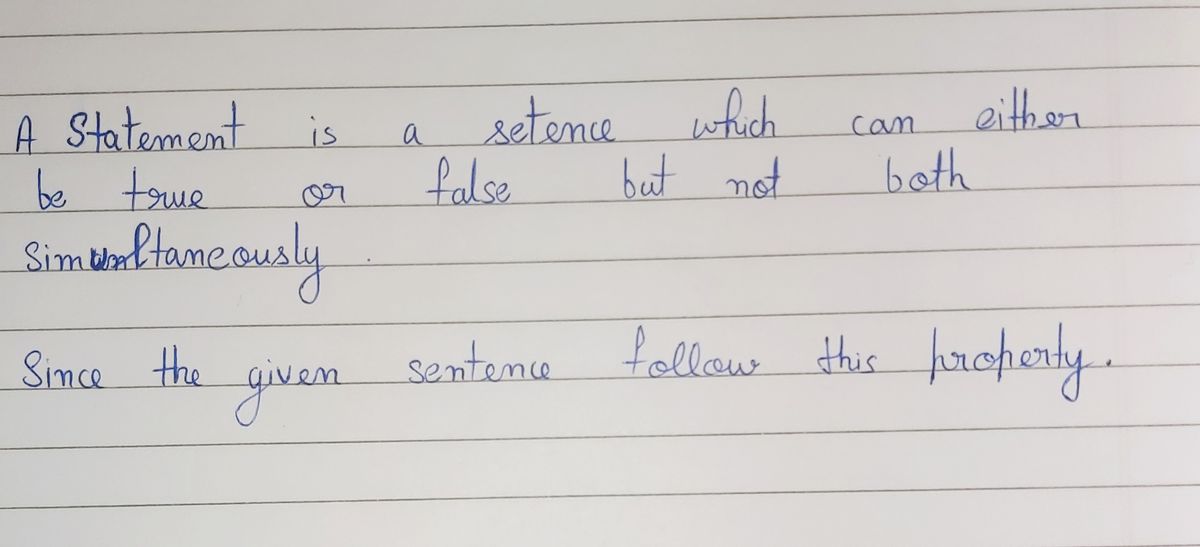 A Statement is a setence which can either
be true or false but not both
simultaneously.
Since the given sentence follow this property.